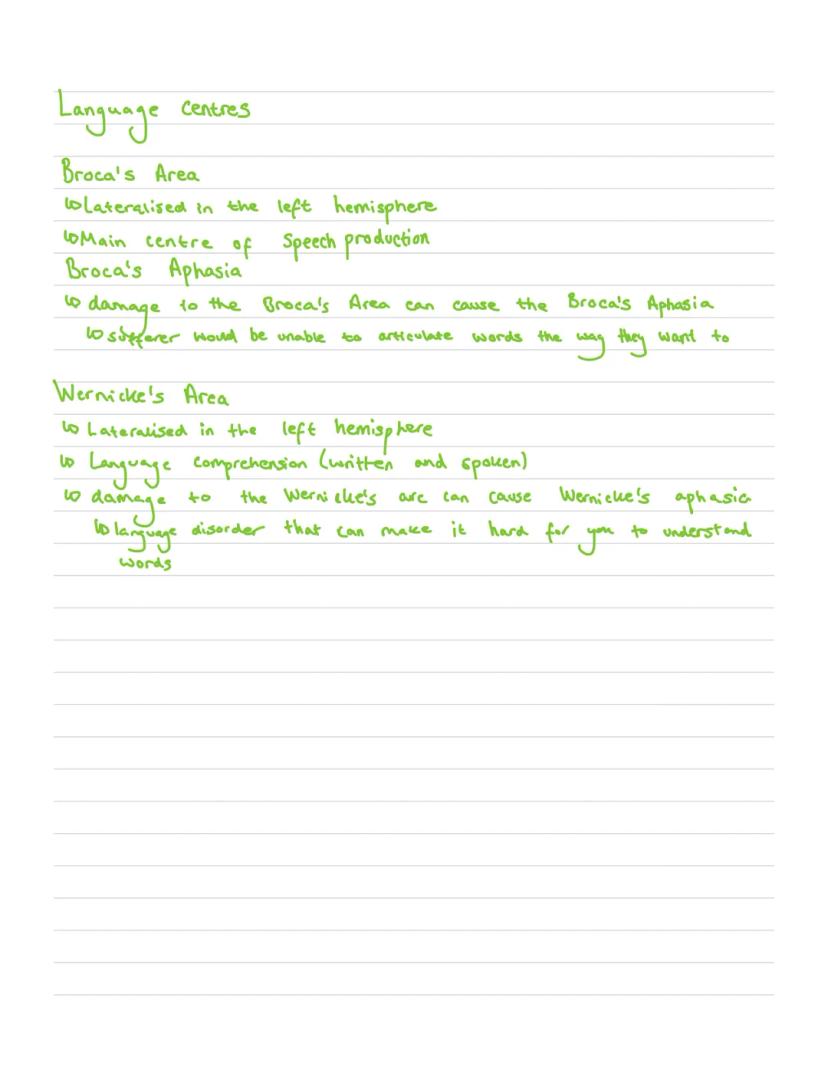 Language Centres
Broca's Area
↳ Lateralised in the left hemisphere
↳ Main centre of Speech production
Broca's Aphasia
↳ damage to the Broca's Area can cause the Broca's Aphasia
↳ sufferer would be unable to articulate words the way they want to
Wernicke's Area
↳ Lateralised in the left hemisphere
↳ Language comprehension (written and spoken)
↳ damage to the Wernicke's are can cause Wernicke's aphasia
↳ language disorder that can make it hard for you to understand
words